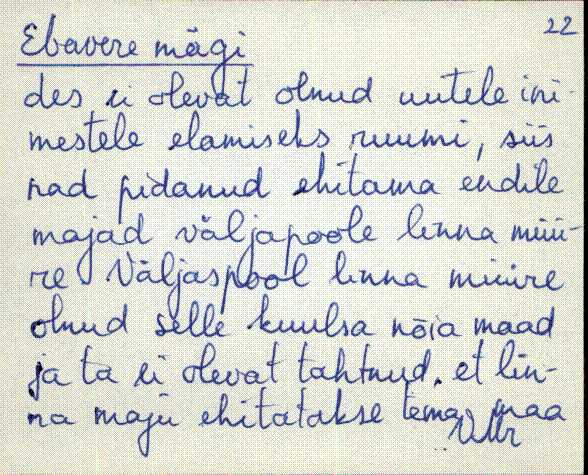 22
Ebavere mägi
des, ei olevat olnud uutele ini-
mestele elamiseks ruumi, siis
nad pidanud ehitama endile
majad väljapoole linna müü-
re. Väljaspool linna müüre
olnud selle kuulsa nõia maad
ja ta ei olevat tahtnud, et lin-
na maju ehitatakse tema maa